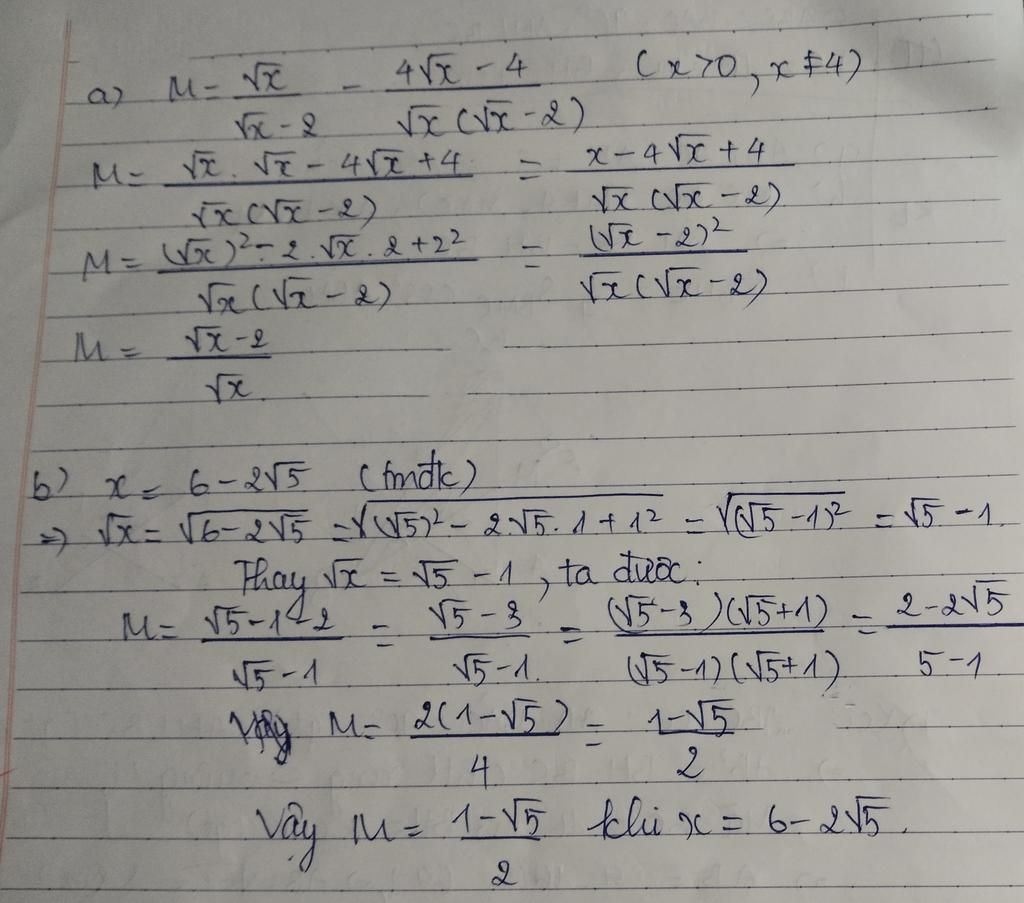 a) M = √x/(√x - 2) - (4√x - 4)/(√x(√x - 2)) (x>0, x≠4)
M = (√x . √x - 4√x + 4)/(√x(√x - 2)) = (x - 4√x + 4)/(√x(√x - 2))
M = ((√x)² - 2.√x.2 + 2²)/(√x(√x - 2)) = (√x - 2)²/(√x(√x - 2))
M = (√x - 2)/√x
b) x = 6 - 2√5 (tmđk)
=> √x = √(6 - 2√5) = √((√5)² - 2.√5.1 + 1²) = √((√5 - 1)²) = √5 - 1.
Thay √x = √5 - 1, ta được:
M = (√5 - 1 - 2)/(√5 - 1) = (√5 - 3)/(√5 - 1) = ((√5 - 3)(√5 + 1))/((√5 - 1)(√5 + 1)) = (2 - 2√5)/(5 - 1)
M = 2(1 - √5)/4 = (1 - √5)/2
Vậy M = (1 - √5)/2 khi x = 6 - 2√5.